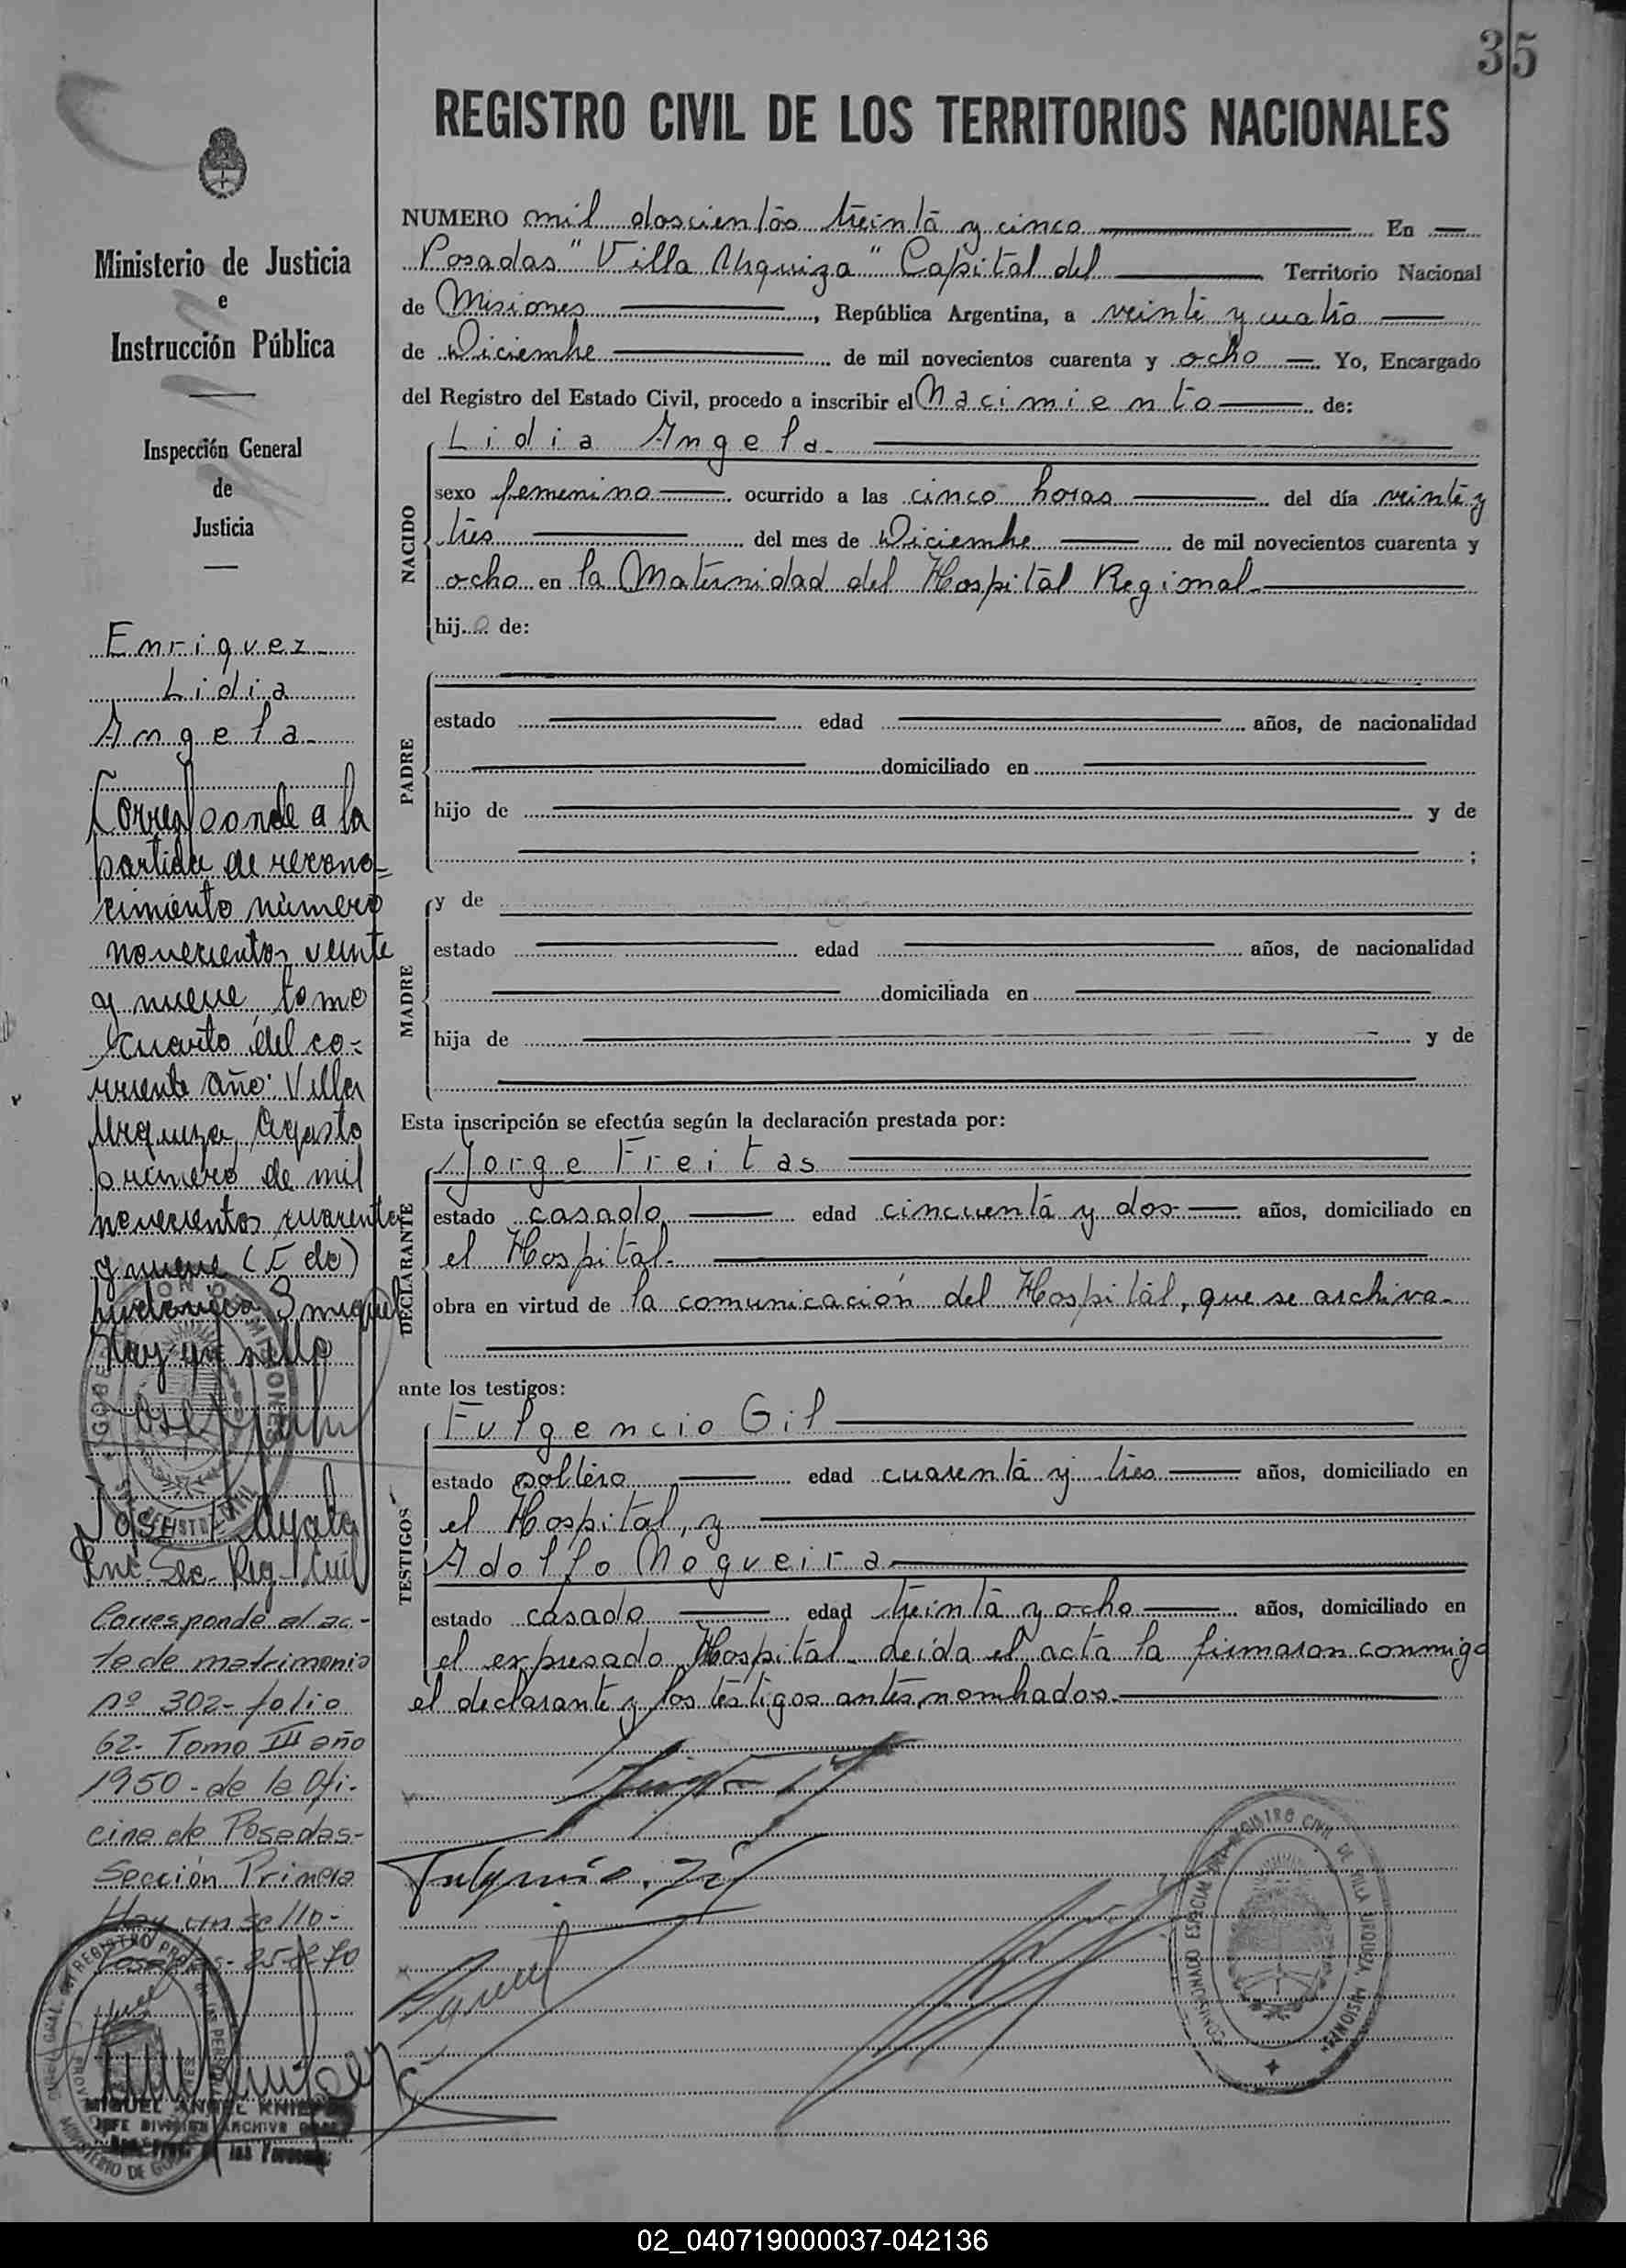 35
REGISTRO CIVIL DE LOS TERRITORIOS NACIONALES
Ministerio de Justicia
e
Instrucción Pública
Inspección General
de
Justicia
Enriquez
Lidia
Angela
Corresponde a la
partida de recono-
cimiento número
novecientos veinte
y nueve, tomo
cuarto del co-
rriente año: Villa
Urquiza, Agosto
primero de mil
novecientos cuarenta
y nueve
Hay un sello
José Ayala
Enc. Sec. Reg. Civil
Corresponde al ac-
ta de matrimonio
nº 302- folio
62- Tomo III año
1950- de la Ofi-
cina de Posadas-
Sección Primera
Hay un sello-
MIGUEL ANGEL
JEFE DIVISION ARCHIVO
NUMERO mil doscientos treinta y cinco En
Posadas "Villa Urquiza" Capital del Territorio Nacional
de Misiones, República Argentina, a veinte y cuatro
de Diciembre de mil novecientos cuarenta y ocho Yo, Encargado
del Registro del Estado Civil, procedo a inscribir el Nacimiento de:
NACIDO
Lidia Angela
sexo femenino ocurrido a las cinco horas del día veinte y
tres del mes de Diciembre de mil novecientos cuarenta y
ocho en la Maternidad del Hospital Regional
hij de:
PADRE
estado edad años, de nacionalidad
domiciliado en
hijo de y de
;
MADRE
y de
estado edad años, de nacionalidad
domiciliada en
hija de y de
Esta inscripción se efectúa según la declaración prestada por:
DECLARANTE
Jorge Freitas
estado casado edad cincuenta y dos años, domiciliado en
el Hospital.
obra en virtud de la comunicación del Hospital, que se archiva.
ante los testigos:
TESTIGOS
Fulgencio Gil
estado soltero edad cuarenta y tres años, domiciliado en
el Hospital, y
Adolfo Nogueira
estado casado edad treinta y ocho años, domiciliado en
el expresado Hospital. Leida el acta la firmaron conmigo
el declarante y los testigos antes nombrados.
REGISTRO CIVIL DE VILLA URQUIZA, MISIONES
02_040719000037-042136